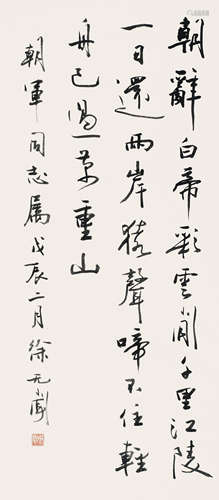 朝辭白帝彩雲間千里江陵
一日還兩岸猿聲啼不住輕
舟已過萬重山
朝軍同志屬戊辰二月徐无聞